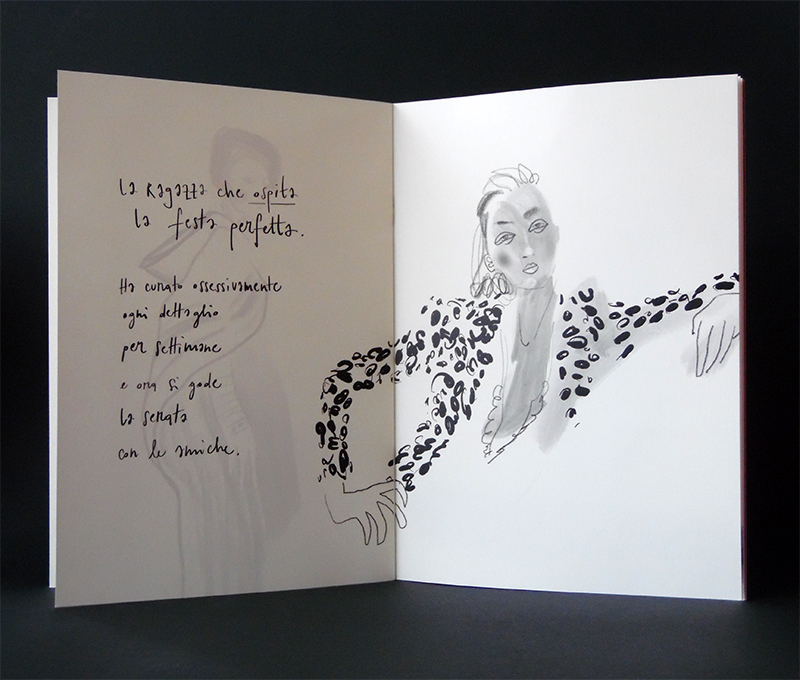 La Ragazza che ospita
la festa perfetta.
Ha curato ossessivamente
ogni dettaglio
per settimane
e ora si gode
la serata
con le amiche.